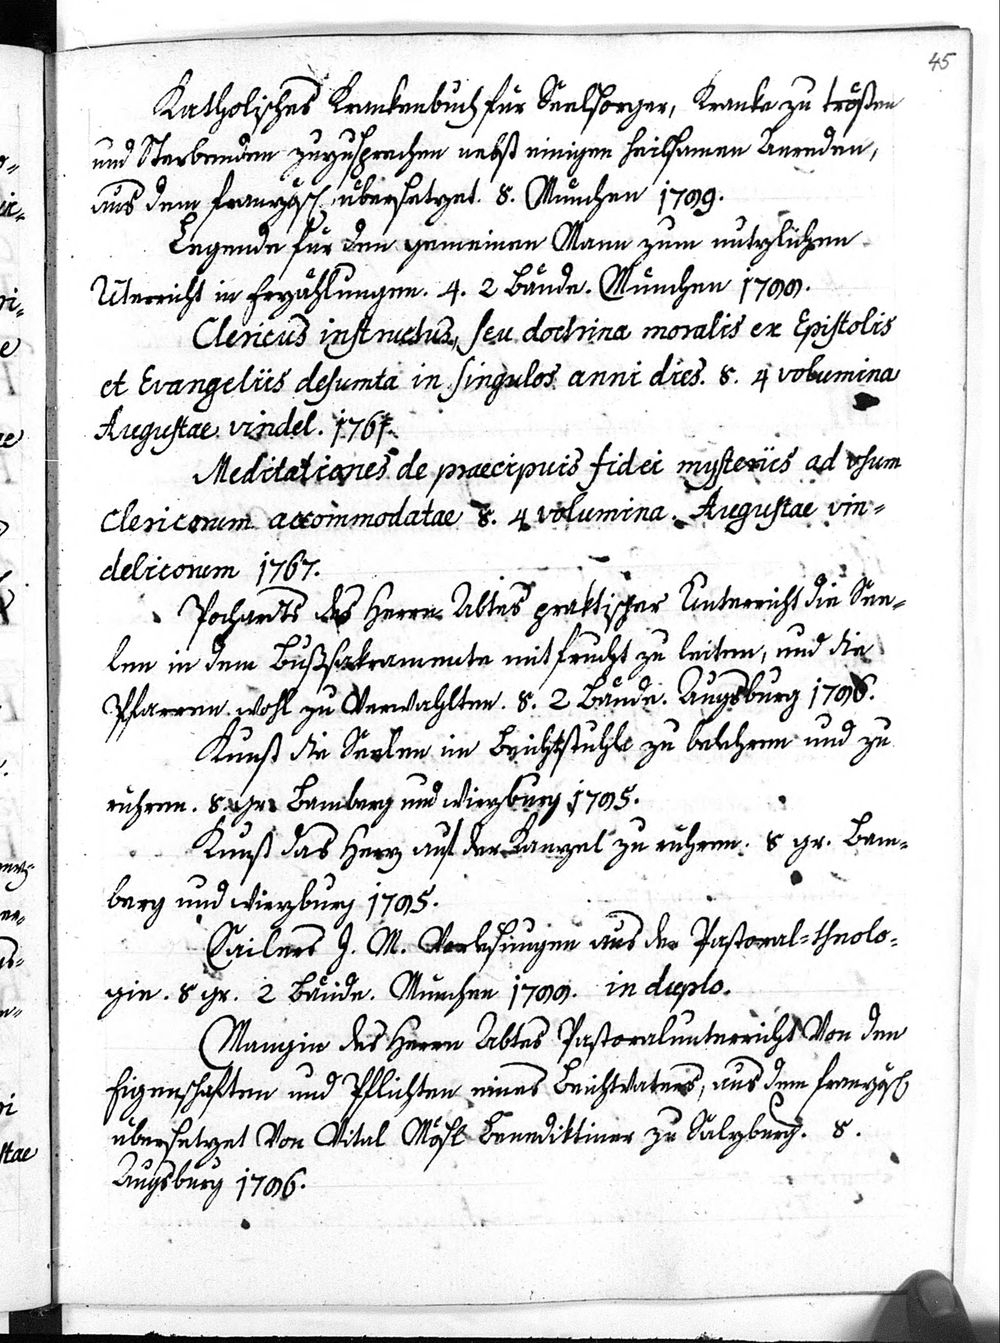 45
Katholisches Krankenbuch für Seelsorger, Kranke zu trösten
und Sterbenden zuzusprechen nebst einigen heilsamen Anreden,
aus dem französ. übersetzet. 8. München 1799.
Legende für den gemeinen Mann zum nutzlichen
Uterricht in Erzählungen. 4. 2 Bände. München 1799.
Clericus instructus, seu doctrina moralis ex Epistolis
et Evangeliis desumta in singulos anni dies. 8. 4 volumina
Augustae vindel. 1767.
Meditationes de praecipuis fidei mysteriis ad usum
Clericorum accommodatae 8. 4 volumina. Augustae vin=
delicorum 1767.
Pochards des Herrn Abtes praktischer Unterricht die See=
len in dem Bußsakramente mit Frucht zu leiten, und die
Pfarren wohl zu Verwahlten. 8. 2 Bände. Augsburg 1796.
Kunst die Seelen im Beichtstuhle zu belehren und zu
rühren. 8. gr. Bamberg und Wirzburg 1795.
Kunst das Herz auf der Kanzel zu rühren. 8 gr. Bam=
berg und Wirzburg 1795.
Sailers J. M. Vorlesungen aus der Pastoral=theolo=
gie. 8 gr. 2 Bände. München 1799. in duplo.
Mangin des Herrn Abtes Pastoralunterricht Von den
Eigenschaften und Pflichten eines Beichtvaters, aus dem französ
übersetzet Von Vital Mösl Benediktiner zu Salzburg. 8.
Augsburg 1796.